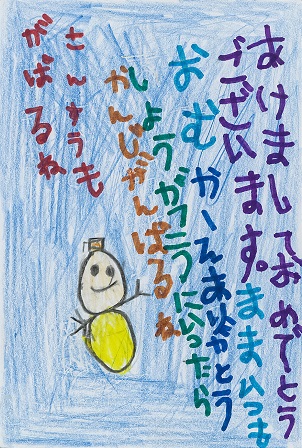 あけましておめでとう
ございます。ままいつも
おむかーえありがとう
しょうがっこうにいったら
かんじがんばるね
さんすうも
がばるね